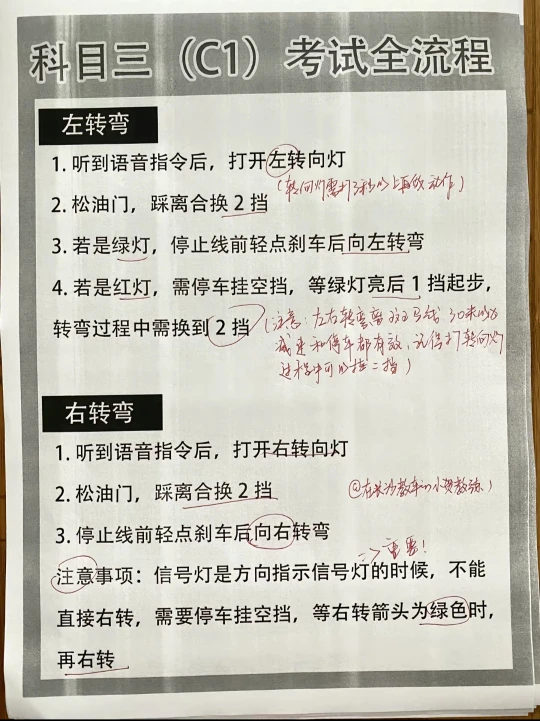 科目三（C1）考试全流程
左转弯
1. 听到语音指令后，打开左转向灯
（转向灯需打3秒以上再做动作）
2. 松油门，踩离合换 2 挡
3. 若是绿灯，停止线前轻点刹车后向左转弯
4. 若是红灯，需停车挂空挡，等绿灯亮后 1 挡起步，
转弯过程中需换到 2 挡
（注意：左右转弯 斑马线 30米以
减速和停车都有效，记得打转向灯
过程中可以挂二挡）
右转弯
1. 听到语音指令后，打开右转向灯
2. 松油门，踩离合换 2 挡
@在长沙教车的小贺教练
3. 停止线前轻点刹车后向右转弯
=> 重要！
注意事项：信号灯是方向指示信号灯的时候，不能
直接右转，需要停车挂空挡，等右转箭头为绿色时，
再右转